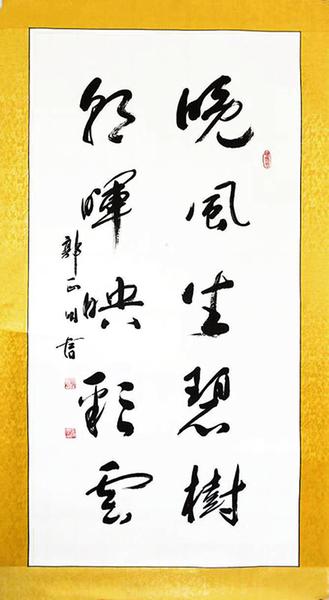 晚風生碧樹
朝暉映彩雲
郭正明書